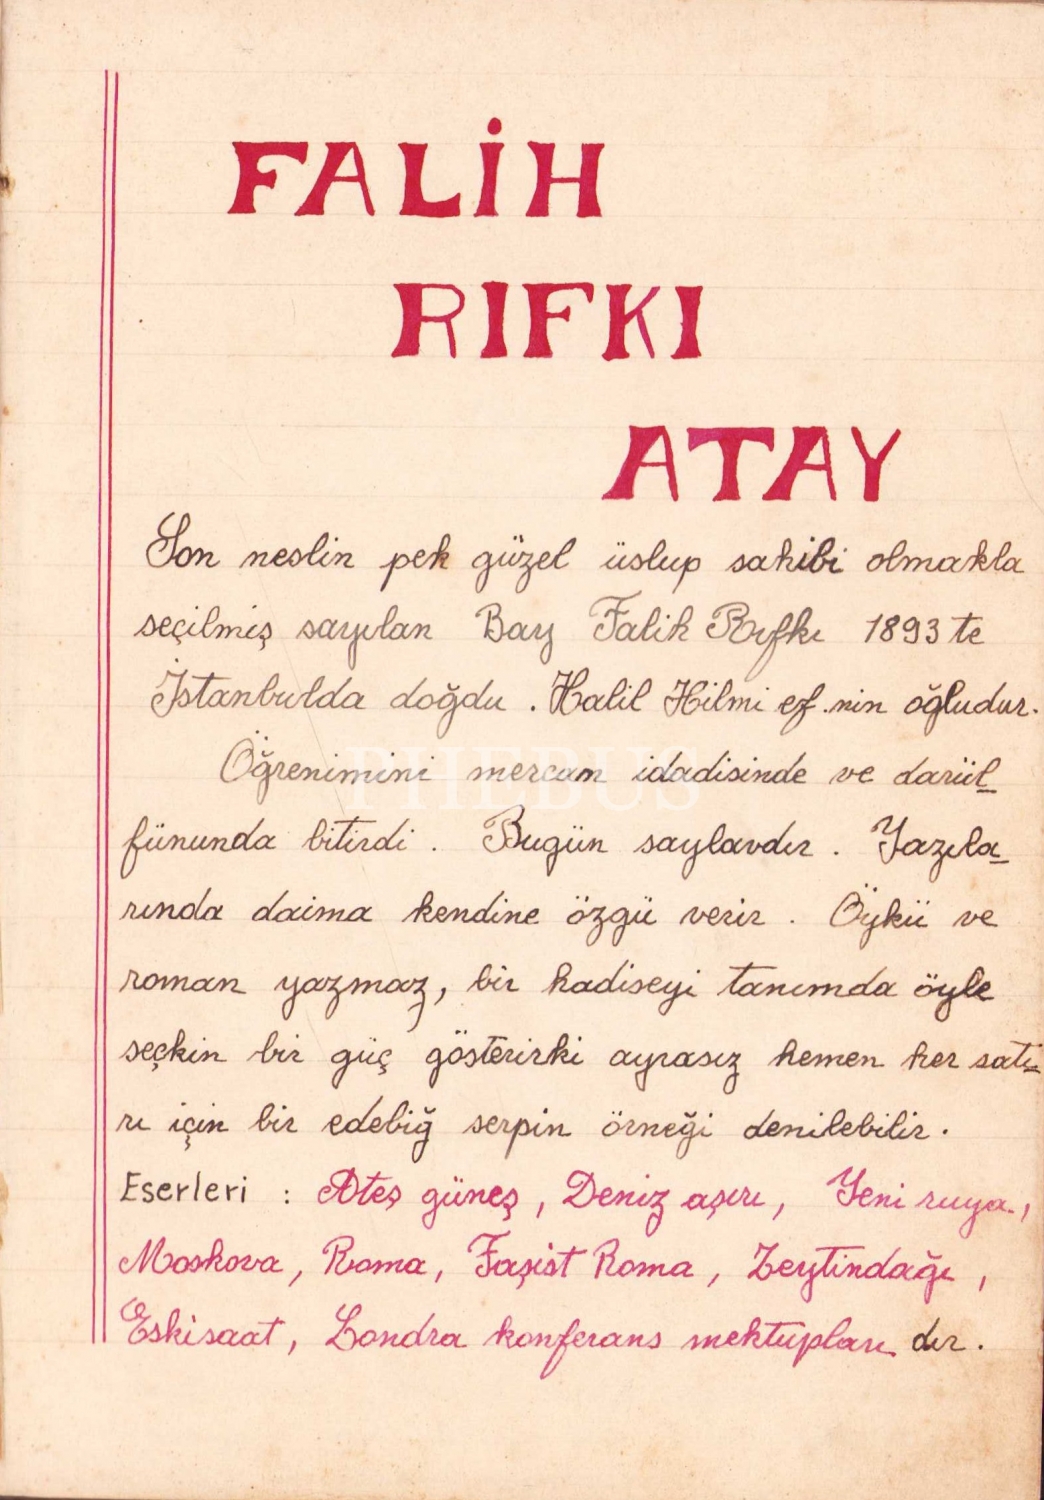 FALİH
RIFKI
ATAY
Son neslin pek güzel üslup sahibi olmakla
seçilmiş sayılan Bay Falih Rıfkı 1893 te
İstanbulda doğdu . Halil Hilmi ef .nin oğludur.
Öğrenimini mercan idadisinde ve darül_
PHEBUS
fünunda bitirdi . Bugün saylavdır . Yazıla_
rında daima kendine özgü verir . Öykü ve
roman yazmaz, bir hadiseyi tanımda öyle
seçkin bir güç gösterirki ayrasız hemen her satı_
rı için bir edebiğ serpin örneği denilebilir .
Eserleri : Ateş güneş , Deniz aşırı , Yeni ruya ,
Moskova , Roma , Faşist Roma , Zeytindağı ,
Eskisaat , Londra konferans mektupları dır .